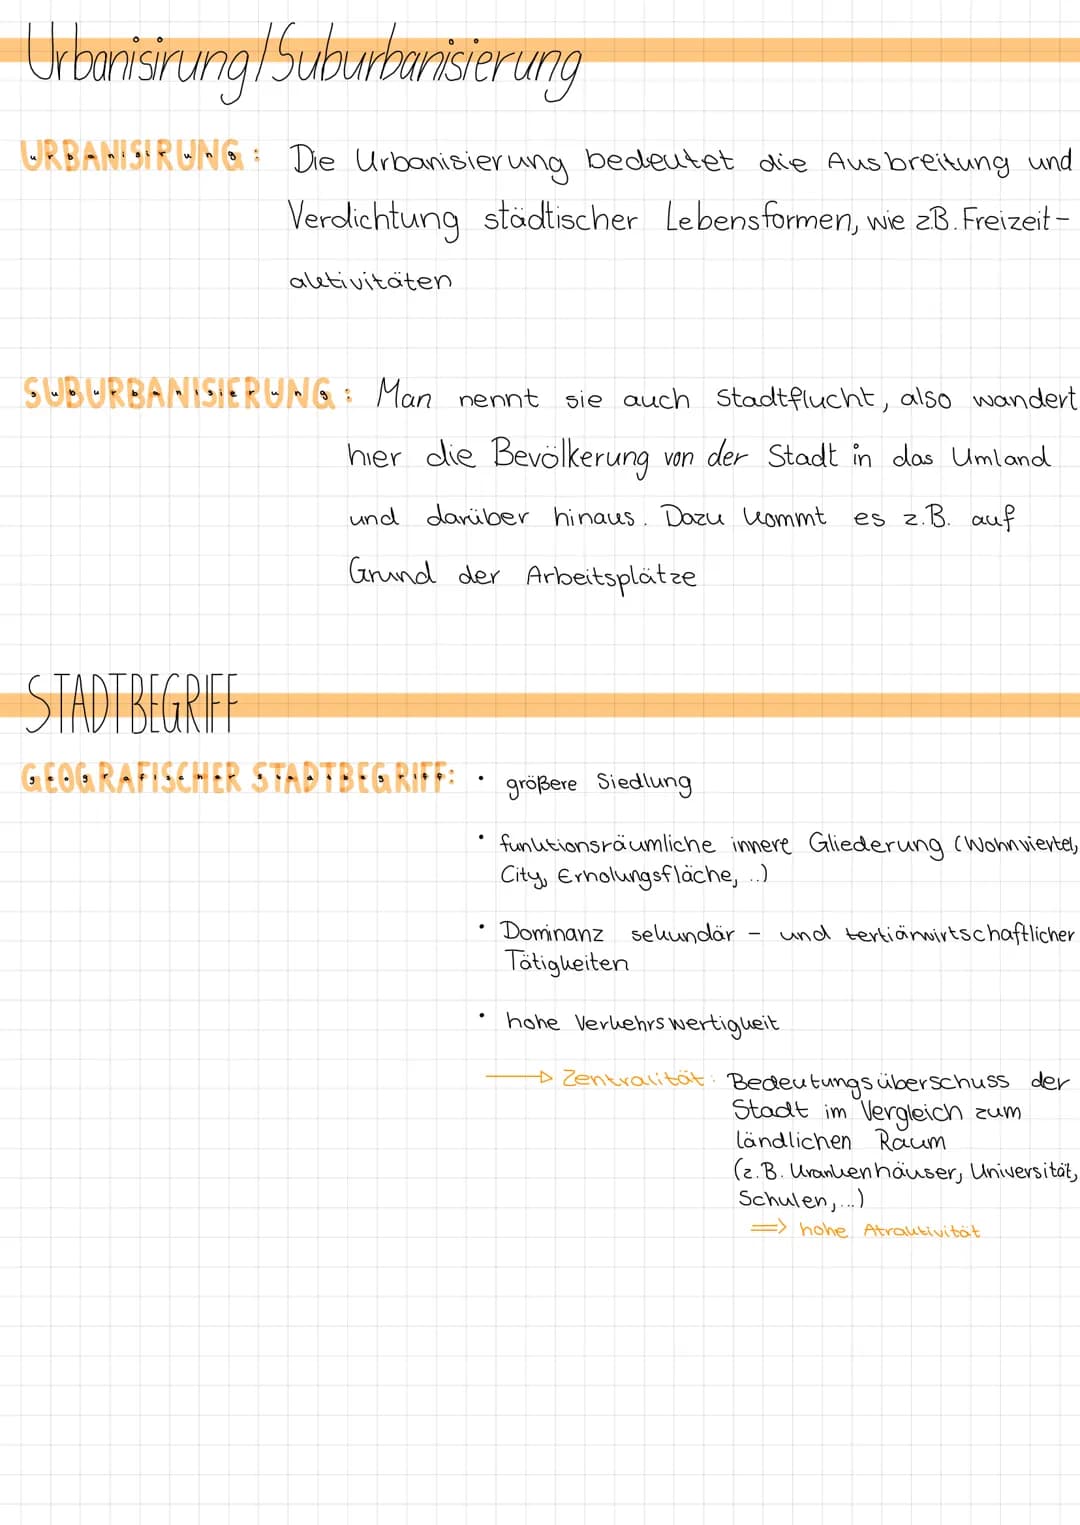 Urbanisirung/Suburbanisierung
URBANISIRUNG: Die Urbanisierung bedeutet die Ausbreitung und
Verdichtung städtischer Lebensformen, wie z.B. Freizeit-
aktivitäten
SUBURBANISIERUNG: Man nennt sie auch Stadtflucht, also wandert
hier die Bevölkerung von der Stadt in das Umland
und darüber hinaus. Dazu kommt es z.B. auf
Grund der Arbeitsplätze
STADTBEGRIFF
GEOGRAFISCHER STADTBEGRIFF: • größere Siedlung
• funktionsräumliche innere Gliederung (Wohnviertel,
City, Erholungsfläche, ..)
• Dominanz sekundär - und tertiärwirtschaftlicher
Tätigkeiten
• hohe Verkehrswertigkeit
→ Zentralität: Bedeutungsüberschuss der
Stadt im Vergleich zum
ländlichen Raum
(z.B. Krankenhäuser, Universität,
Schulen,...)
⇒ hohe Atraktivität